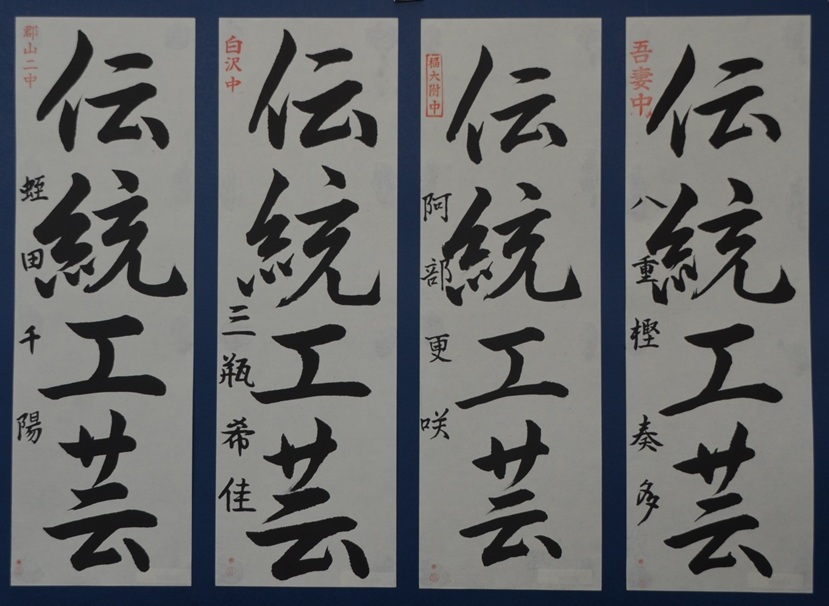 吾妻中
伝統工芸
八重樫 奏多
福大附中
伝統工芸
阿部 更咲
白沢中
伝統工芸
三瓶 希佳
郡山二中
伝統工芸
蛭田 千陽